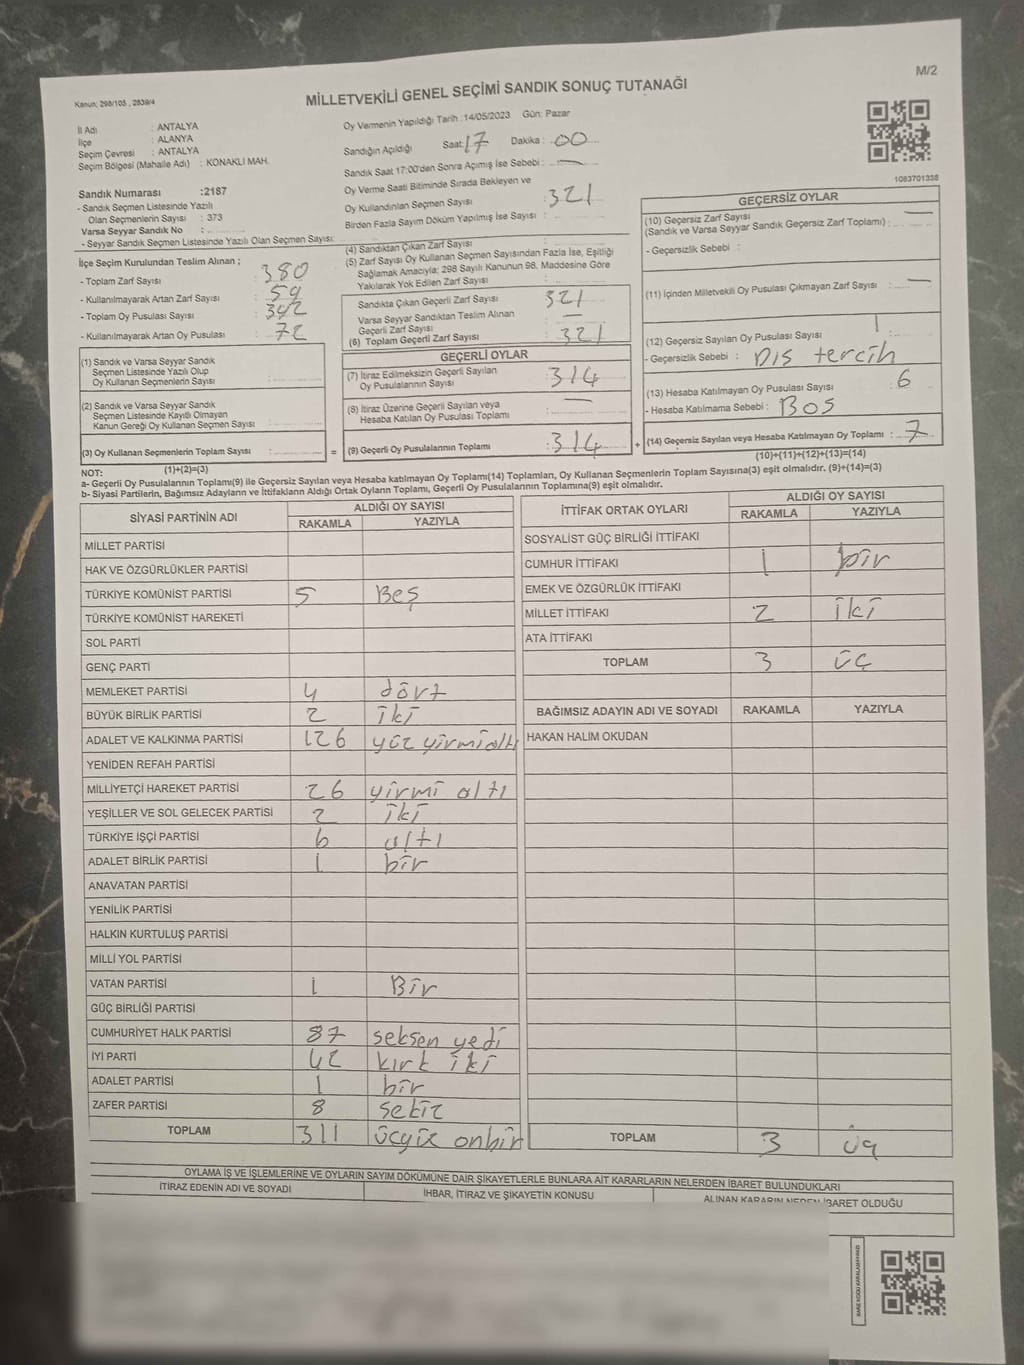 M/2
Kanun; 298/105 , 2839/4
MİLLETVEKİLİ GENEL SEÇİMİ SANDIK SONUÇ TUTANAĞI
İl Adı : ANTALYA
İlçe : ALANYA
Seçim Çevresi : ANTALYA
Seçim Bölgesi (Mahalle Adı) : KONAKLI MAH.
Sandık Numarası :2187
- Sandık Seçmen Listesinde Yazılı
Olan Seçmenlerin Sayısı : 373
Varsa Seyyar Sandık No :
- Seyyar Sandık Seçmen Listesinde Yazılı Olan Seçmen Sayısı:
Oy Vermenin Yapıldığı Tarih :14/05/2023 Gün: Pazar
Sandığın Açıldığı Saat: 17 Dakika : 00
Sandık Saat 17:00'den Sonra Açımış İse Sebebi : —
Oy Verme Saati Bitiminde Sırada Bekleyen ve
Oy Kullandırılan Seçmen Sayısı : 321
Birden Fazla Sayım Döküm Yapılmış İse Sayısı :
1083701338
İlçe Seçim Kurulundan Teslim Alınan ;
- Toplam Zarf Sayısı : 380
- Kullanılmayarak Artan Zarf Sayısı : 59
- Toplam Oy Pusulası Sayısı : 392
- Kullanılmayarak Artan Oy Pusulası : 72
(1) Sandık ve Varsa Seyyar Sandık
Seçmen Listesinde Yazılı Olup
Oy Kullanan Seçmenlerin Sayısı :
(2) Sandık ve Varsa Seyyar Sandık
Seçmen Listesinde Kayıtlı Olmayan
Kanun Gereği Oy Kullanan Seçmen Sayısı :
(3) Oy Kullanan Seçmenlerin Toplam Sayısı :
(1)+(2)=(3)
(4) Sandıktan Çıkan Zarf Sayısı :
(5) Zarf Sayısı Oy Kullanan Seçmen Sayısından Fazla İse, Eşitliği
Sağlamak Amacıyla; 298 Sayılı Kanunun 98. Maddesine Göre
Yakılarak Yok Edilen Zarf Sayısı :
Sandıkta Çıkan Geçerli Zarf Sayısı : 321
Varsa Seyyar Sandıktan Teslim Alınan
Geçerli Zarf Sayısı : —
(6) Toplam Geçerli Zarf Sayısı : 321
GEÇERLİ OYLAR
(7) İtiraz Edilmeksizin Geçerli Sayılan
Oy Pusulalarının Sayısı : 314
(8) İtiraz Üzerine Geçerli Sayılan veya
Hesaba Katılan Oy Pusulası Toplamı : —
= (9) Geçerli Oy Pusulalarının Toplamı : 314 +
GEÇERSİZ OYLAR
(10) Geçersiz Zarf Sayısı
(Sandık ve Varsa Seyyar Sandık Geçersiz Zarf Toplamı) : —
- Geçersizlik Sebebi :
(11) İçinden Milletvekili Oy Pusulası Çıkmayan Zarf Sayısı : —
(12) Geçersiz Sayılan Oy Pusulası Sayısı : 1
- Geçersizlik Sebebi : Dış tercih
(13) Hesaba Katılmayan Oy Pusulası Sayısı : 6
- Hesaba Katılmama Sebebi : Boş
(14) Geçersiz Sayılan veya Hesaba Katılmayan Oy Toplamı : 7
(10)+(11)+(12)+(13)=(14)
NOT:
a- Geçerli Oy Pusulalarının Toplamı(9) ile Geçersiz Sayılan veya Hesaba katılmayan Oy Toplamı(14) Toplamları, Oy Kullanan Seçmenlerin Toplam Sayısına(3) eşit olmalıdır. (9)+(14)=(3)
b- Siyasi Partilerin, Bağımsız Adayların ve İttifakların Aldığı Ortak Oyların Toplamı, Geçerli Oy Pusulalarının Toplamına(9) eşit olmalıdır.
SİYASİ PARTİNİN ADI ALDIĞI OY SAYISI
RAKAMLA YAZIYLA
MİLLET PARTİSİ
HAK VE ÖZGÜRLÜKLER PARTİSİ
TÜRKİYE KOMÜNİST PARTİSİ 5 Beş
TÜRKİYE KOMÜNİST HAREKETİ
SOL PARTİ
GENÇ PARTİ
MEMLEKET PARTİSİ 4 dört
BÜYÜK BİRLİK PARTİSİ 2 iki
ADALET VE KALKINMA PARTİSİ 126 yüz yirmi altı
YENİDEN REFAH PARTİSİ
MİLLİYETÇİ HAREKET PARTİSİ 26 yirmi altı
YEŞİLLER VE SOL GELECEK PARTİSİ 2 iki
TÜRKİYE İŞÇİ PARTİSİ 6 altı
ADALET BİRLİK PARTİSİ 1 bir
ANAVATAN PARTİSİ
YENİLİK PARTİSİ
HALKIN KURTULUŞ PARTİSİ
MİLLİ YOL PARTİSİ
VATAN PARTİSİ 1 Bir
GÜÇ BİRLİĞİ PARTİSİ
CUMHURİYET HALK PARTİSİ 87 seksen yedi
İYİ PARTİ 42 kırk iki
ADALET PARTİSİ 1 bir
ZAFER PARTİSİ 8 sekiz
TOPLAM 311 üçyüz onbir
İTTİFAK ORTAK OYLARI ALDIĞI OY SAYISI
RAKAMLA YAZIYLA
SOSYALİST GÜÇ BİRLİĞİ İTTİFAKI
CUMHUR İTTİFAKI 1 bir
EMEK VE ÖZGÜRLÜK İTTİFAKI
MİLLET İTTİFAKI 2 iki
ATA İTTİFAKI
TOPLAM 3 üç
BAĞIMSIZ ADAYIN ADI VE SOYADI RAKAMLA YAZIYLA
HAKAN HALİM OKUDAN
TOPLAM 3 üç
OYLAMA İŞ VE İŞLEMLERİNE VE OYLARIN SAYIM DÖKÜMÜNE DAİR ŞİKAYETLERLE BUNLARA AİT KARARLARIN NELERDEN İBARET BULUNDUKLARI
İTİRAZ EDENİN ADI VE SOYADI İHBAR, İTİRAZ VE ŞİKAYETİN KONUSU ALINAN KARARIN NEDEN İBARET OLDUĞU